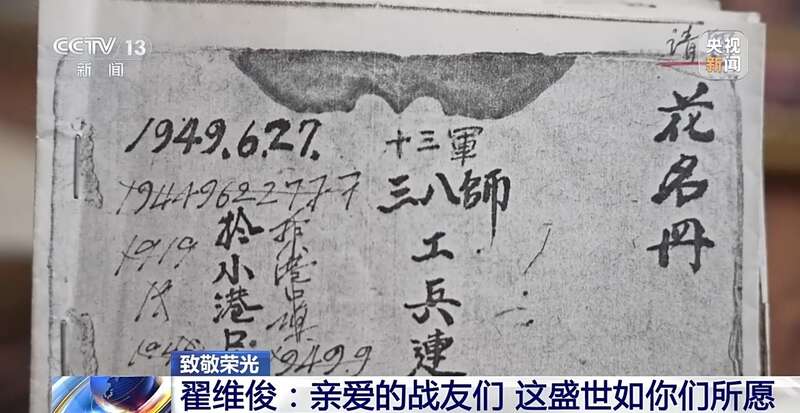 CCTV 13
新闻
央视
新闻
请
花名册
十三軍
三八師
工兵連
1949.6.27.
於小港
1949.9
致敬荣光
翟维俊：亲爱的战友们 这盛世如你们所愿